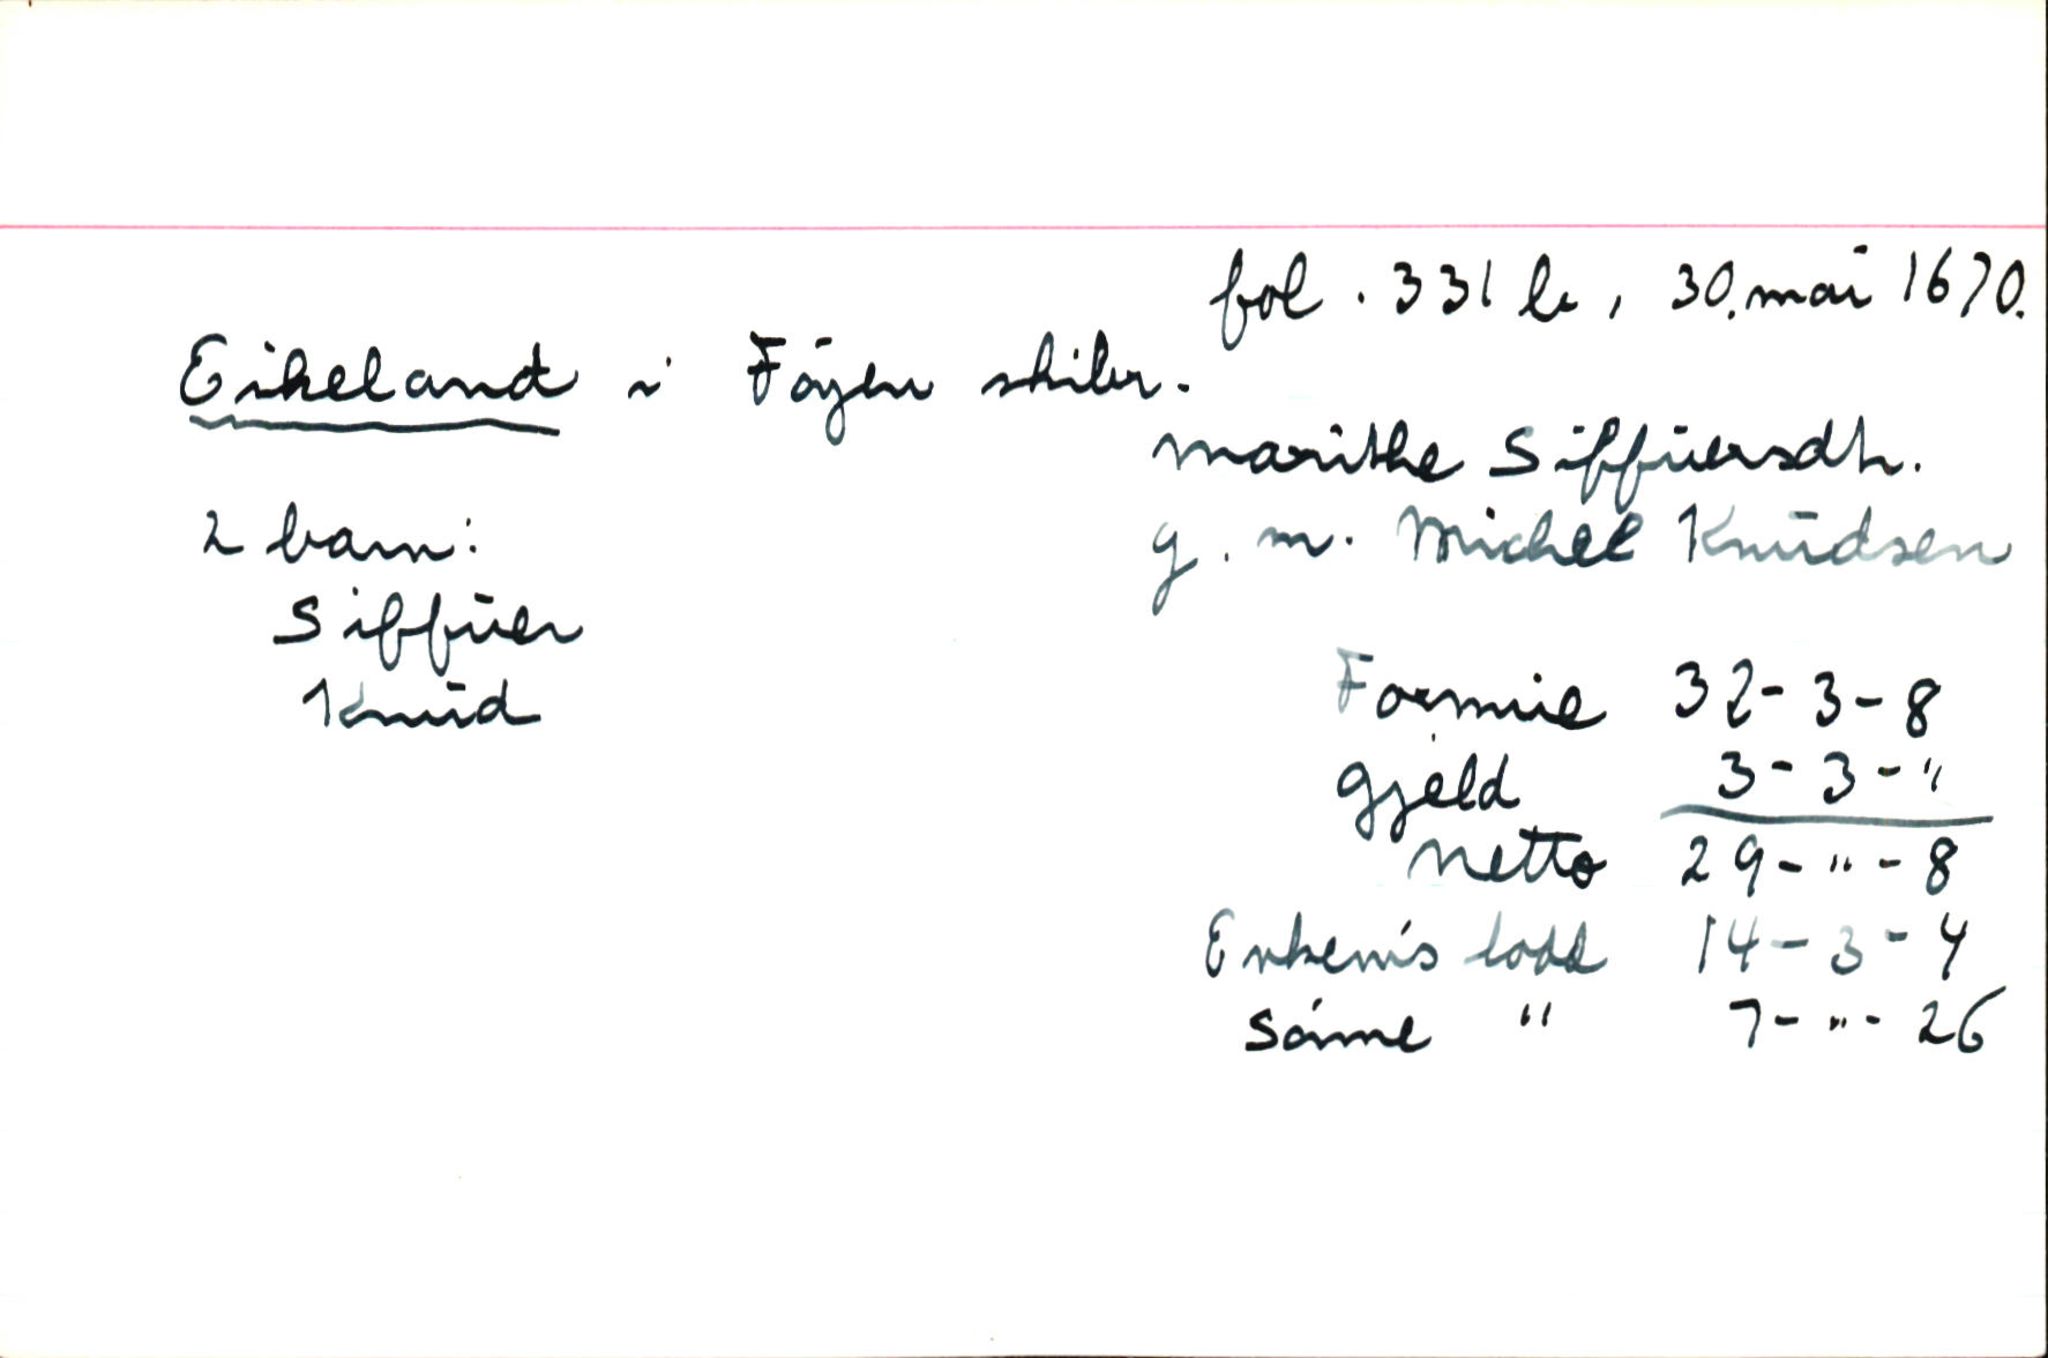 fol. 331 b, 30. mai 1670.
Eikeland i Föyen skibr.
Marithe Siffuersdtr.
2 barn: g. m. Michel Knudsen
Siffuer
Knud
Formue 32-3-8
Gjeld 3-3-"
Netto 29-"-8
Enkem's lodd 14-3-4
Sönne " 7-"-26